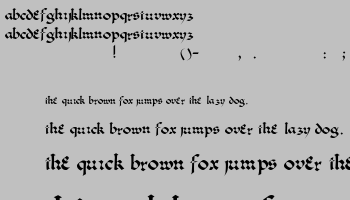 abcdefghijklmnopqrstuvwxyz
abcdefghijklmnopqrstuvwxyz
! ()- , . : ;
the quick brown fox jumps over the lazy dog.
the quick brown fox jumps over the lazy dog.
the quick brown fox jumps over the